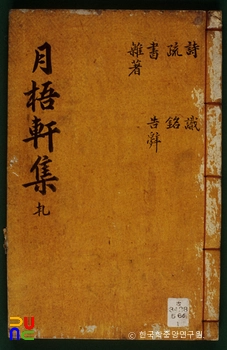 詩 識
疏 銘
書 告辭
雜著
月梧軒集
ⓒ 한국학중앙연구원